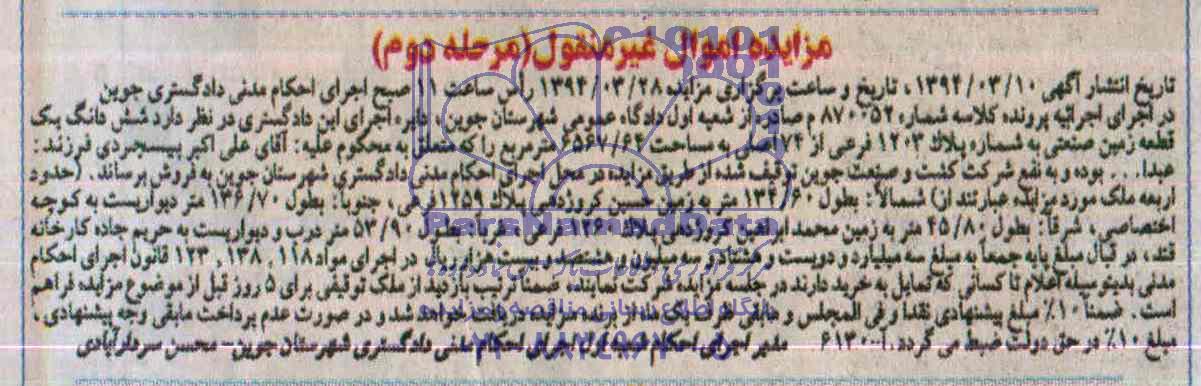 مزایده اموال غیرمنقول (مرحله دوم)
تاریخ انتشار آگهی ۱۳۹۴/۰۳/۱۰ ، تاریخ و ساعت برگزاری مزایده ۱۳۹۴/۰۳/۲۸ رأس ساعت ۱۱ صبح اجرای احکام مدنی دادگستری جوین
در اجرای اجرائیه پرونده کلاسه شماره ۸۷۰۰۵۲ م صادره از شعبه اول دادگاه عمومی شهرستان جوین ، دایره اجرای این دادگستری در نظر دارد شش دانگ یک
قطعه زمین صنعتی به شماره پلاک ۱۲۰۳ فرعی از ۷۴ اصلی به مساحت ۶۵۶۷/۶۴ مترمربع را که متعلق به محکوم علیه: آقای علی اکبر فرزند:
عبدا... بوده و به نفع شرکت کشت و صنعت جوین توقیف شده از طریق مزایده در محل اجرای احکام مدنی دادگستری شهرستان جوین به فروش برساند . (حدود
اربعه ملک مورد مزایده عبارتند از) شمالاً: بطول متر به زمین حسن پلاک ۱۱۵۹ فرعی ، جنوباً: بطول ۱۳۶/۷۰ متر دیواریست به کوچه
اختصاصی، شرقاً: بطول ۴۵/۸۰ متر به زمین محمد ابراهیم پلاک فرعی ، غرباً: بطول ۵۳/۹۰ متر درب و دیواریست به حریم جاده کارخانه
قند، در قبال مبلغ پایه جمعاً به مبلغ سه میلیارد و دویست و هشتاد و سه میلیون و هشتصد و بیست هزار ریال در اجرای مواد ۱۱۸ ، ۱۳۸ ، ۱۲۳ قانون اجرای احکام
مدنی بدینوسیله اعلام تا کسانی که تمایل به خرید دارند در جلسه مزایده شرکت نمایند. ضمناً ترتیب بازدید از ملک توقیفی برای ۵ روز قبل از موضوع مزایده فراهم
است . ضمناً ۱۰٪ مبلغ پیشنهادی نقداً و فی المجلس و مابقی ظرف مهلت یکماه از برنده مزایده دریافت خواهد شد و در صورت عدم پرداخت مابقی وجه پیشنهادی ،
مبلغ ۱۰٪ در حق دولت ضبط می گردد. آ-۶۱۳۰ ۶ مدیر اجرای احکام شعبه اول اجرای احکام مدنی دادگستری شهرستان جوین- محسن سردارآبادی
ParsNamadData
پایگاه اطلاع رسانی مناقصه و مزایده